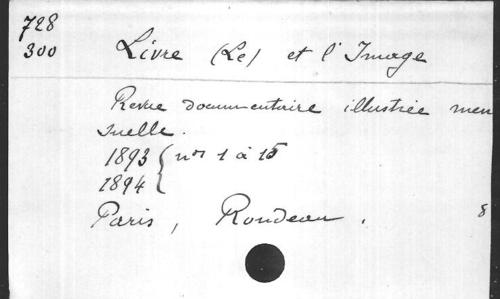 728
300
Livre (Le) et l'Image
Revue documentaire illustrée men
suelle.
1893 { nos 1 à 15
1894 {
Paris, Rondeau.
8